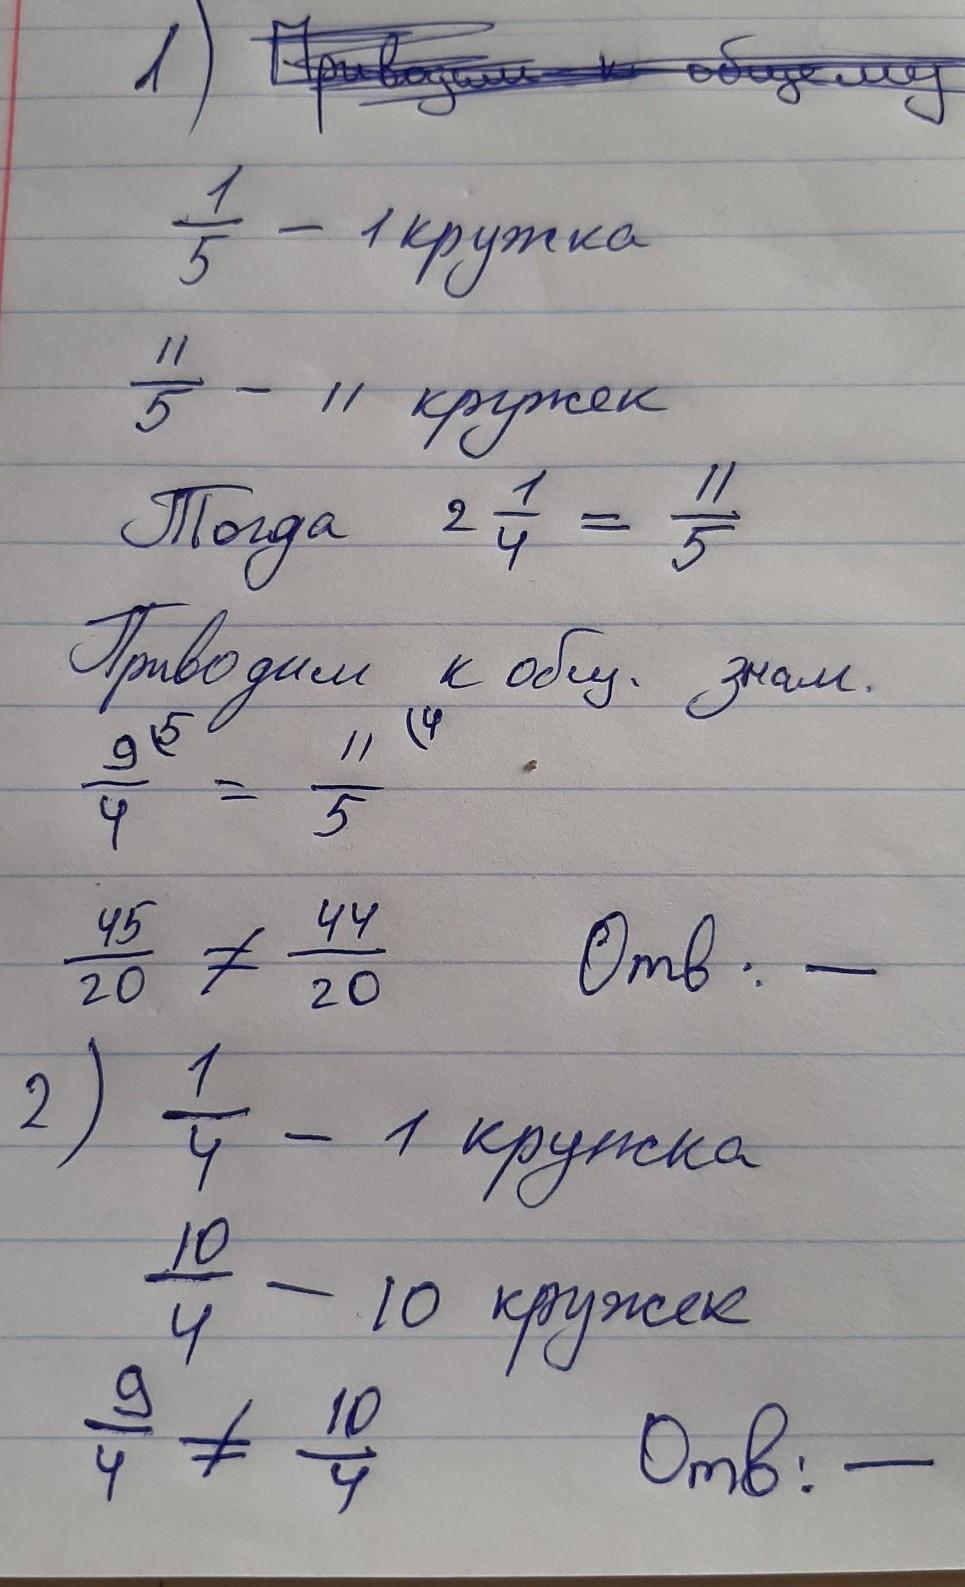 1) Приводим к общему
1/5 - 1 кружка
11/5 - 11 кружек
Тогда 2 1/4 = 11/5
Приводим к общ. знам.
9/4 (5 = 11/5 (4
45/20 ≠ 44/20 Отв: —
2) 1/4 - 1 кружка
10/4 - 10 кружек
9/4 ≠ 10/4 Отв: —